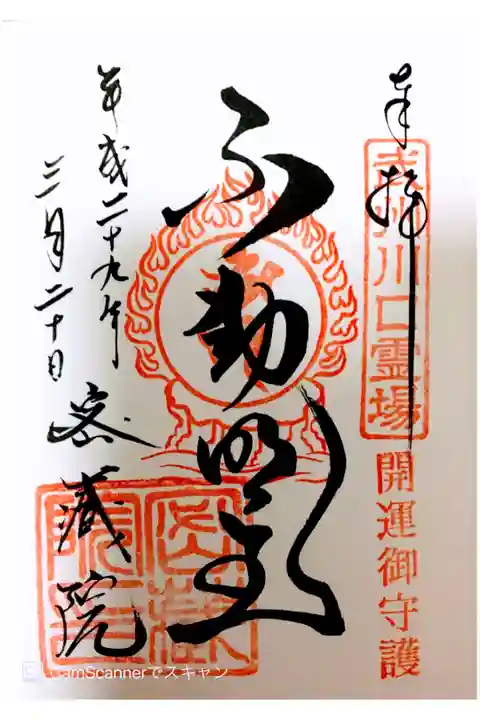 奉拝
武州川口霊場
開運御守護
不動明王
平成二十九年
三月二十日
密蔵院
CamScannerでスキャン